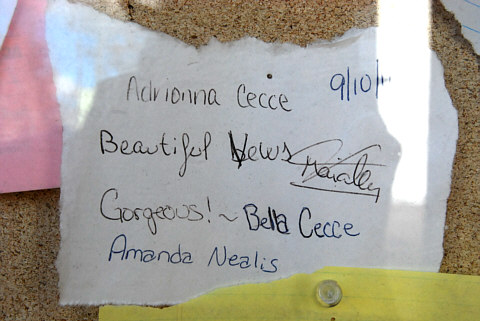 Adrionna Cecce 9/10/
Beautiful Views
Gorgeous! ~ Bella Cecce
Amanda Nealis